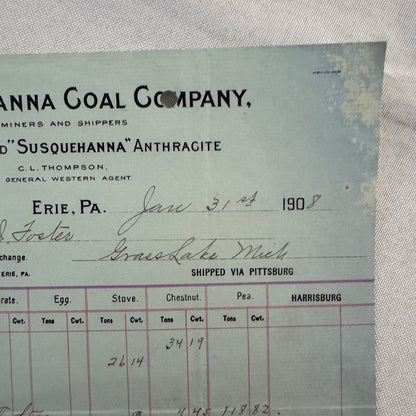 ANNA COAL COMPANY,
MINERS AND SHIPPERS
D "SUSQUEHANNA" ANTHRACITE
C. L. THOMPSON,
GENERAL WESTERN AGENT.
ERIE, PA. Jan 31st 1908
Foster
change. Grass Lake Mich
ERIE, PA. SHIPPED VIA PITTSBURG
rate. Egg. Stove. Chestnut. Pea. HARRISBURG
Cwt. Tons Cwt. Tons Cwt. Tons Cwt. Tons Cwt.
34 19
26 14
4.45 118.82